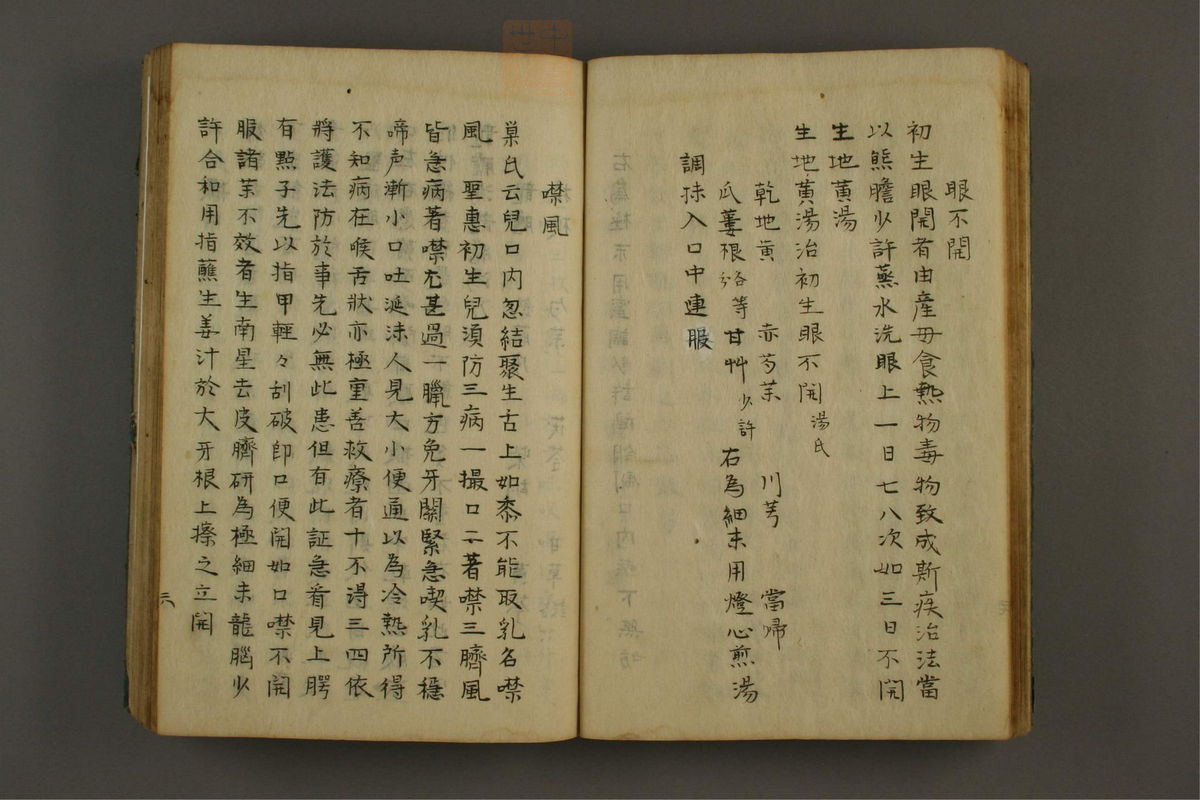 眼不開
初生眼開者由産母食熱物毒物致成斯疾治法當
以熊膽少許蒸水洗眼上一日七八次如三日不開
生地黄湯
生地黄湯治初生眼不開 湯氏
乾地黄 赤芍茱 川芎 當帰
瓜蔞根 各等分 甘艸 少許 右為細末用燈心煎湯
調抹入口中連服
噤風
巢氏云兒口内忽結聚生舌上如黍不能取乳名噤
風 聖惠初生兒須防三病一撮口二著噤三臍風
皆急病著噤尤甚過一臘方免牙關緊急喫乳不穩
啼声漸小口吐涎沫人見大小便通以為冷熱所得
不知病在喉舌狀亦極重善救療者十不得三四依
將護法防於事先必無此患但有此証急看見上腭
有點子先以指甲輕々刮破即口便開如口噤不開
服諸茱不效者生南星去皮臍研為極細末龍腦少
許合和用指蘸生姜汁於大牙根上擦之立開
六